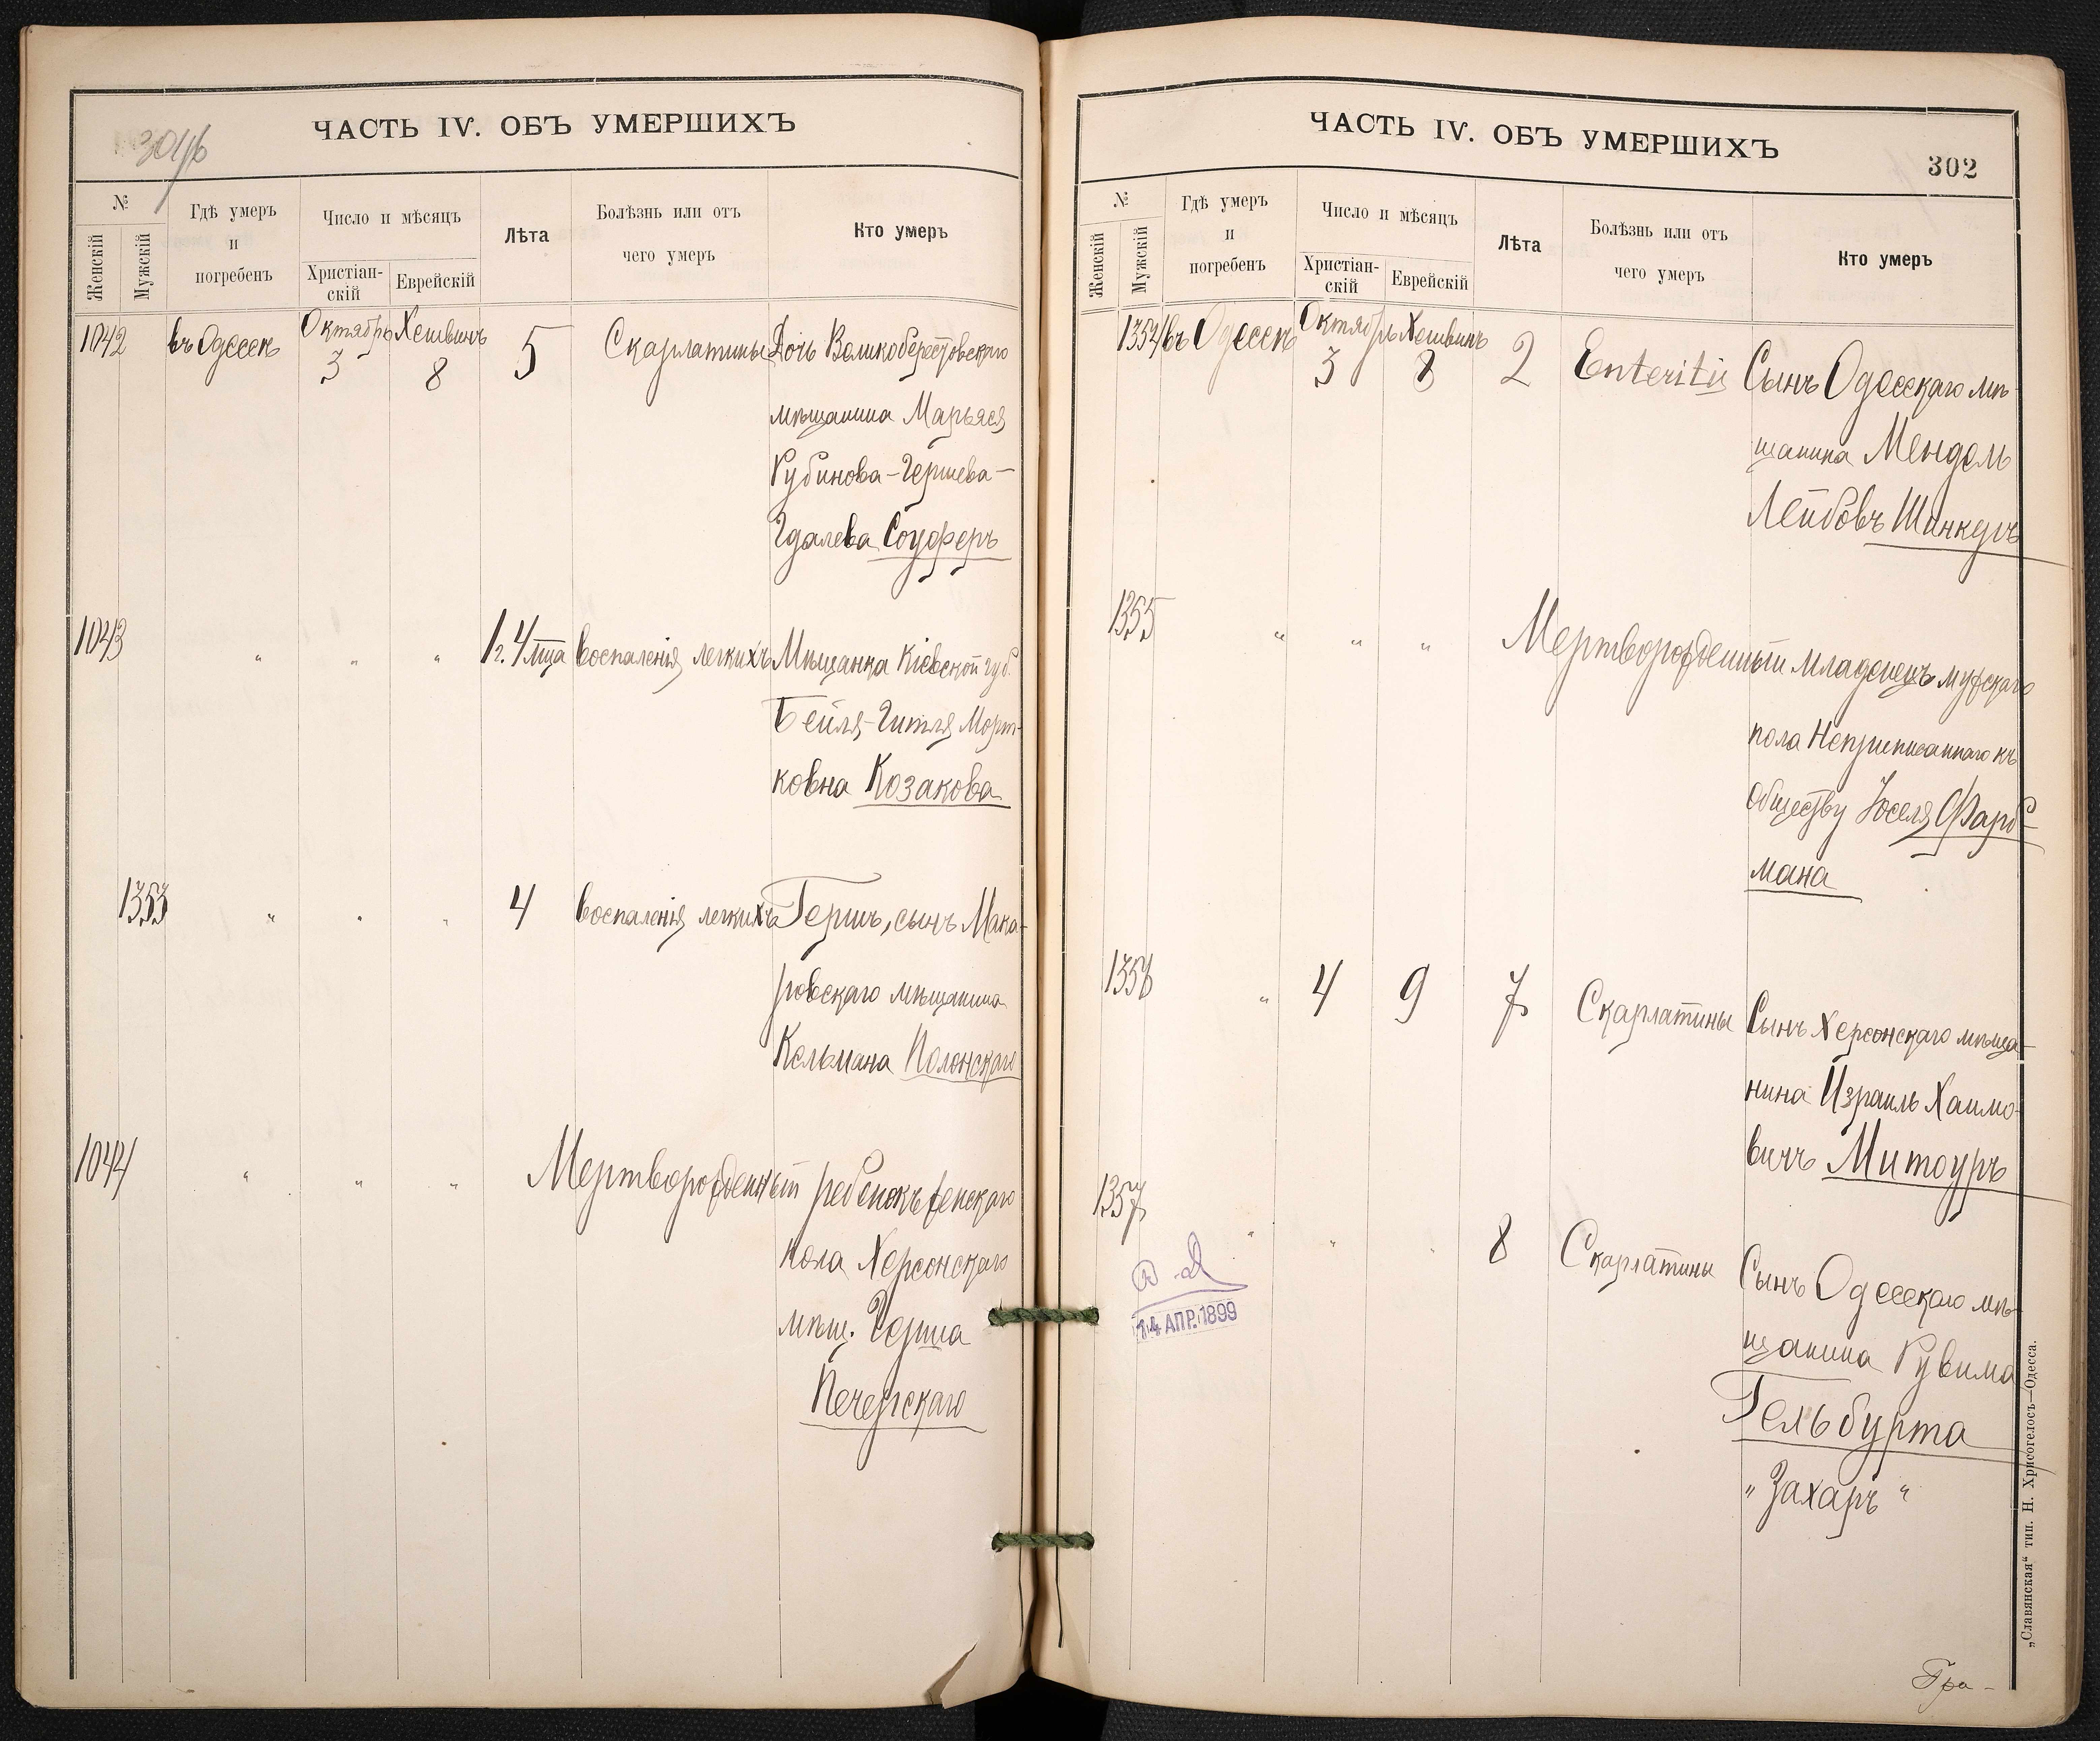 ЧАСТЬ IV. ОБЪ УМЕРШИХЪ
№
Женскій
Мужскій
Гдѣ умеръ
и
погребенъ
Число и мѣсяцъ
Христіан-
скій
Еврейскій
Лѣта
Болѣзнь или отъ
чего умеръ
Кто умеръ
1042 въ Одессѣ Октябрь 3 Хешвинъ 8 5 Скарлатины Дочь Великоберестовскаго
мѣщанина Марьяся
Рубинова-Гершева-
Гдалева Соуферъ
1043 " " " 1 г. 4 мца воспаленія легкихъ Мѣщанка Кіевской губ.
Бейля-Гитля Морт-
ковна Козакова
1353 " " " 4 воспаленія легкихъ Гершъ, сынъ Мака-
ровскаго мѣщанина
Кельмана Полонскаго
1044 " " " Мертворожденный ребенокъ женскаго
пола Херсонскаго
мѣщ. Герша
Печерскаго
ЧАСТЬ IV. ОБЪ УМЕРШИХЪ
302
№
Женскій
Мужскій
Гдѣ умеръ
и
погребенъ
Число и мѣсяцъ
Христіан-
скій
Еврейскій
Лѣта
Болѣзнь или отъ
чего умеръ
Кто умеръ
1354 въ Одессѣ Октябрь 3 Хешвинъ 8 2 Enteritis Сынъ Одесскаго мѣ-
щанина Мендель
Лейбовъ Шинкеръ
1355 " " " Мертворожденный младенецъ мужскаго
пола Неприписаннаго къ
обществу Іоселя Фарб-
мана
1356 " 4 9 7 Скарлатины Сынъ Херсонскаго мѣща-
нина Израиль Хаимо-
вичъ Митоуръ
1357 " " " 8 Скарлатины Сынъ Одесскаго мѣ-
щанина Рувима
Гельбурта
"Захаръ"
14 АПР. 1899
„Славянская“ тип. Н. Хрисогелосъ—Одесса.
Гра-